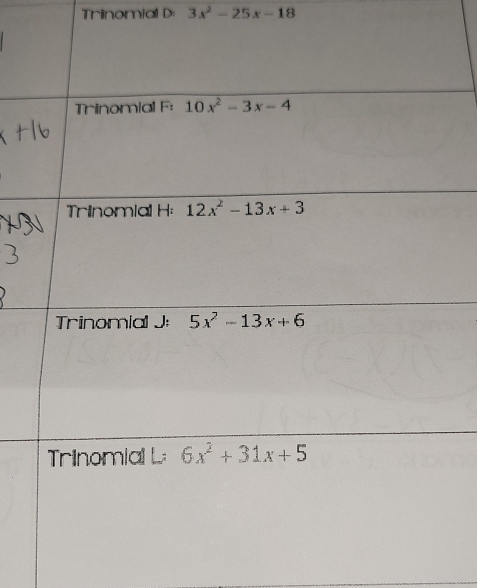 Trinomial D: 3x² − 25x − 18
Trinomial F: 10x² − 3x − 4
x + 16
Trinomial H: 12x² − 13x + 3
3
Trinomial J: 5x² − 13x + 6
Trinomial L: 6x² + 31x + 5